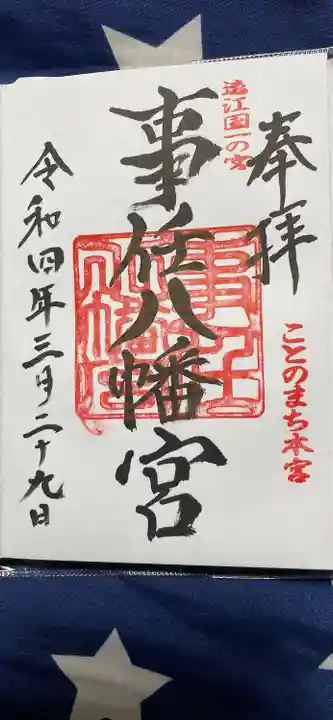 奉拝
ことのまち本宮
遠江国一の宮
事任八幡宮
令和四年三月二十九日